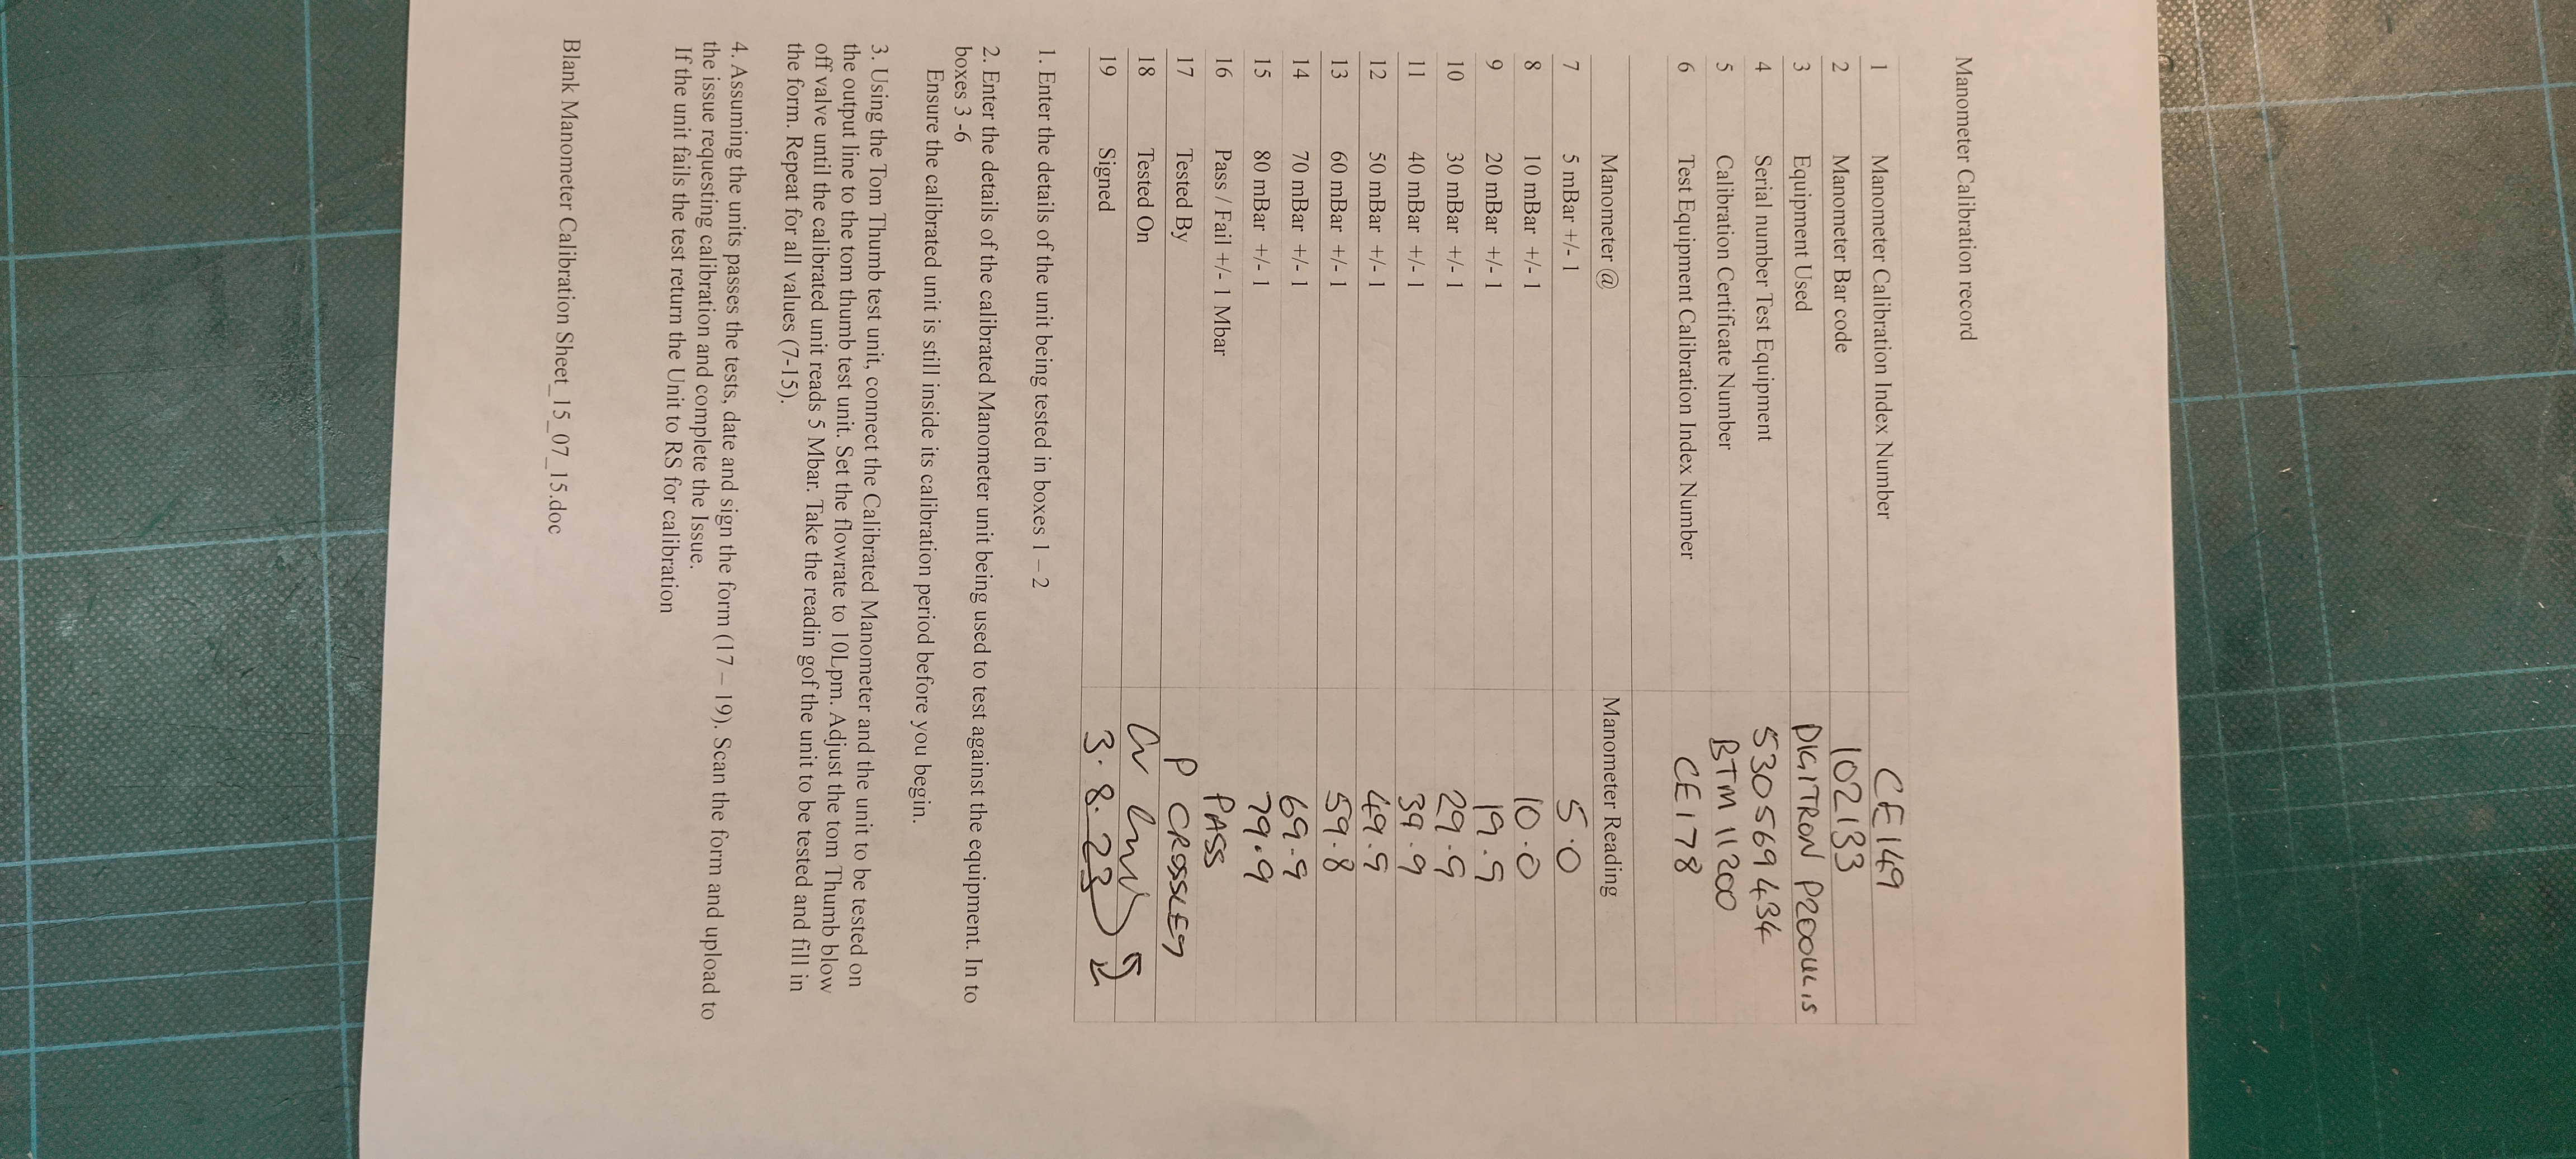 Manometer Calibration record
1 Manometer Calibration Index Number CE149
2 Manometer Bar code 102133
3 Equipment Used DIGITRON P200ULIS
4 Serial number Test Equipment 530569434
5 Calibration Certificate Number BTM 11200
6 Test Equipment Calibration Index Number CE178
Manometer @ Manometer Reading
7 5 mBar +/- 1 5.0
8 10 mBar +/- 1 10.0
9 20 mBar +/- 1 19.9
10 30 mBar +/- 1 29.9
11 40 mBar +/- 1 39.9
12 50 mBar +/- 1 49.9
13 60 mBar +/- 1 59.8
14 70 mBar +/- 1 69.9
15 80 mBar +/- 1 79.9
16 Pass / Fail +/- 1 Mbar PASS
17 Tested By P CROSSLEY
18 Tested On
19 Signed 3.8.23
1. Enter the details of the unit being tested in boxes 1 – 2
2. Enter the details of the calibrated Manometer unit being used to test against the equipment. In to
boxes 3 -6
Ensure the calibrated unit is still inside its calibration period before you begin.
3. Using the Tom Thumb test unit, connect the Calibrated Manometer and the unit to be tested on
the output line to the tom thumb test unit. Set the flowrate to 10Lpm. Adjust the tom Thumb blow
off valve until the calibrated unit reads 5 Mbar. Take the readin gof the unit to be tested and fill in
the form. Repeat for all values (7-15).
4. Assuming the units passes the tests, date and sign the form (17 – 19). Scan the form and upload to
the issue requesting calibration and complete the Issue.
If the unit fails the test return the Unit to RS for calibration
Blank Manometer Calibration Sheet_15_07_15.doc